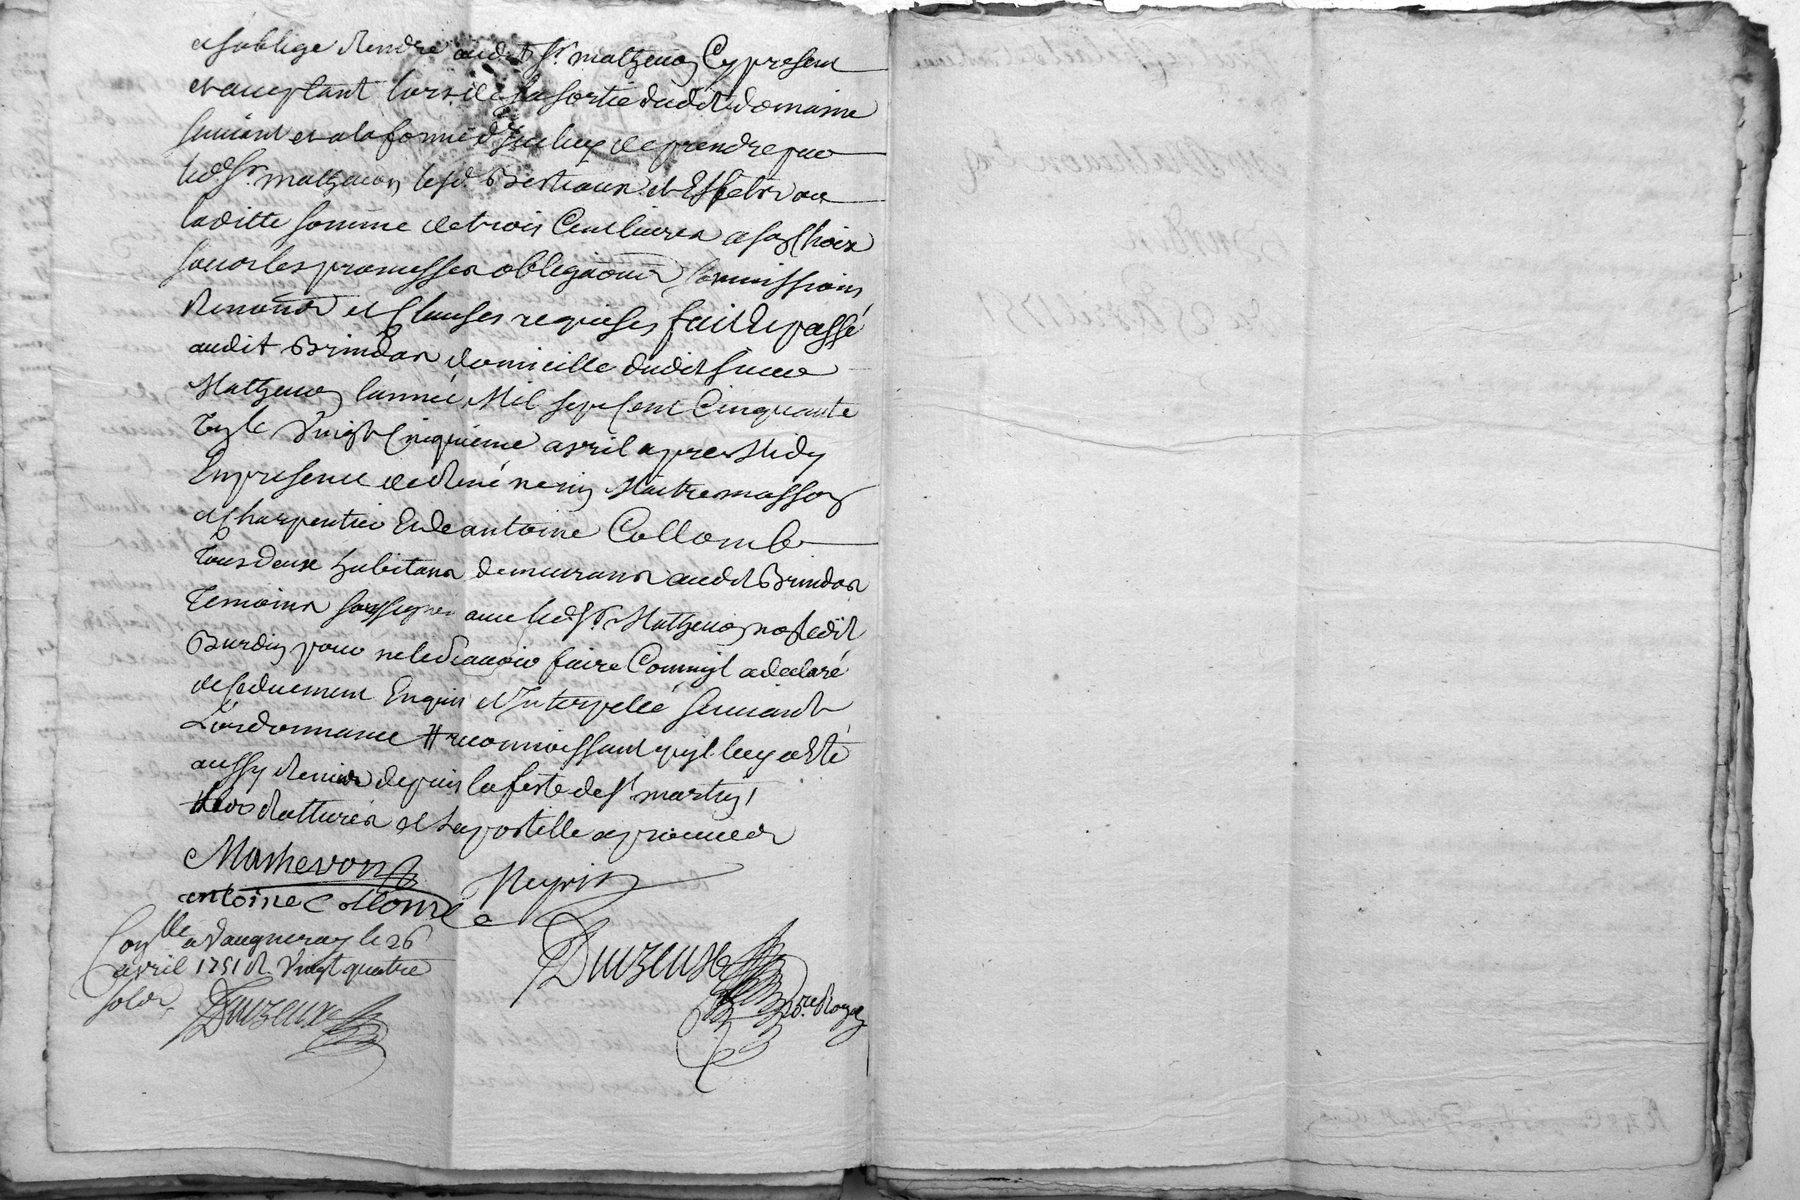 et soblige Rendre audit Sr. mathevon Cy present
et acceptant lors de sa sortie dudit domaine
suivant et a la forme d'Iceluy de prendre par
led. Sr. mathevon lesd. Bestiaux et Effets ou
laditte somme de trois Cent livres a son Choix
sous les promesses obligaõns soumissions
Renonõns et Clauses requises fait et passé
audit Brindas domicille dudit sieur
Mathevon lannée Mil sept Cent Cinquante
un le Vingt Cinquieme avril apres Midy
En presence de Mtre masson
et Charpentier Et de antoine Collomb
tous deux habitans demeurans audit Brindas
temoins soussignes avec led. Sr. Mathevon non ledit
Burdin pour ne le sçavoir faire Comm'jl a declaré
de ce duement Enquis et Interpellé suivant
L'ordonnance # reconnoissant qujl luy a Eté
aussy Remis depuis la feste de St. martin /
Ratturés et Lapostille aprouvés
Mathevon
Neyrin
antoine Collomb
Duzeux
No.re Royal
Con.lle a Vaugneray le 26
avril 1751 R. Vingt quatre
sols
Duzeux